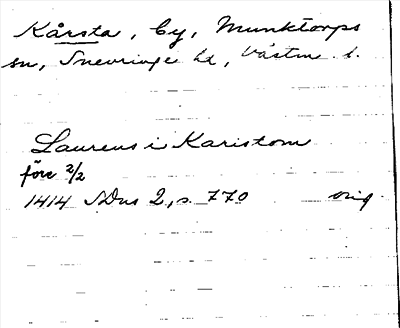 Kårsta, by, Munktorps
sn, Snevringe hd, Västm. l.
Laurens i Karistom
före 2/2
1414 SDns 2, s. 770 orig.